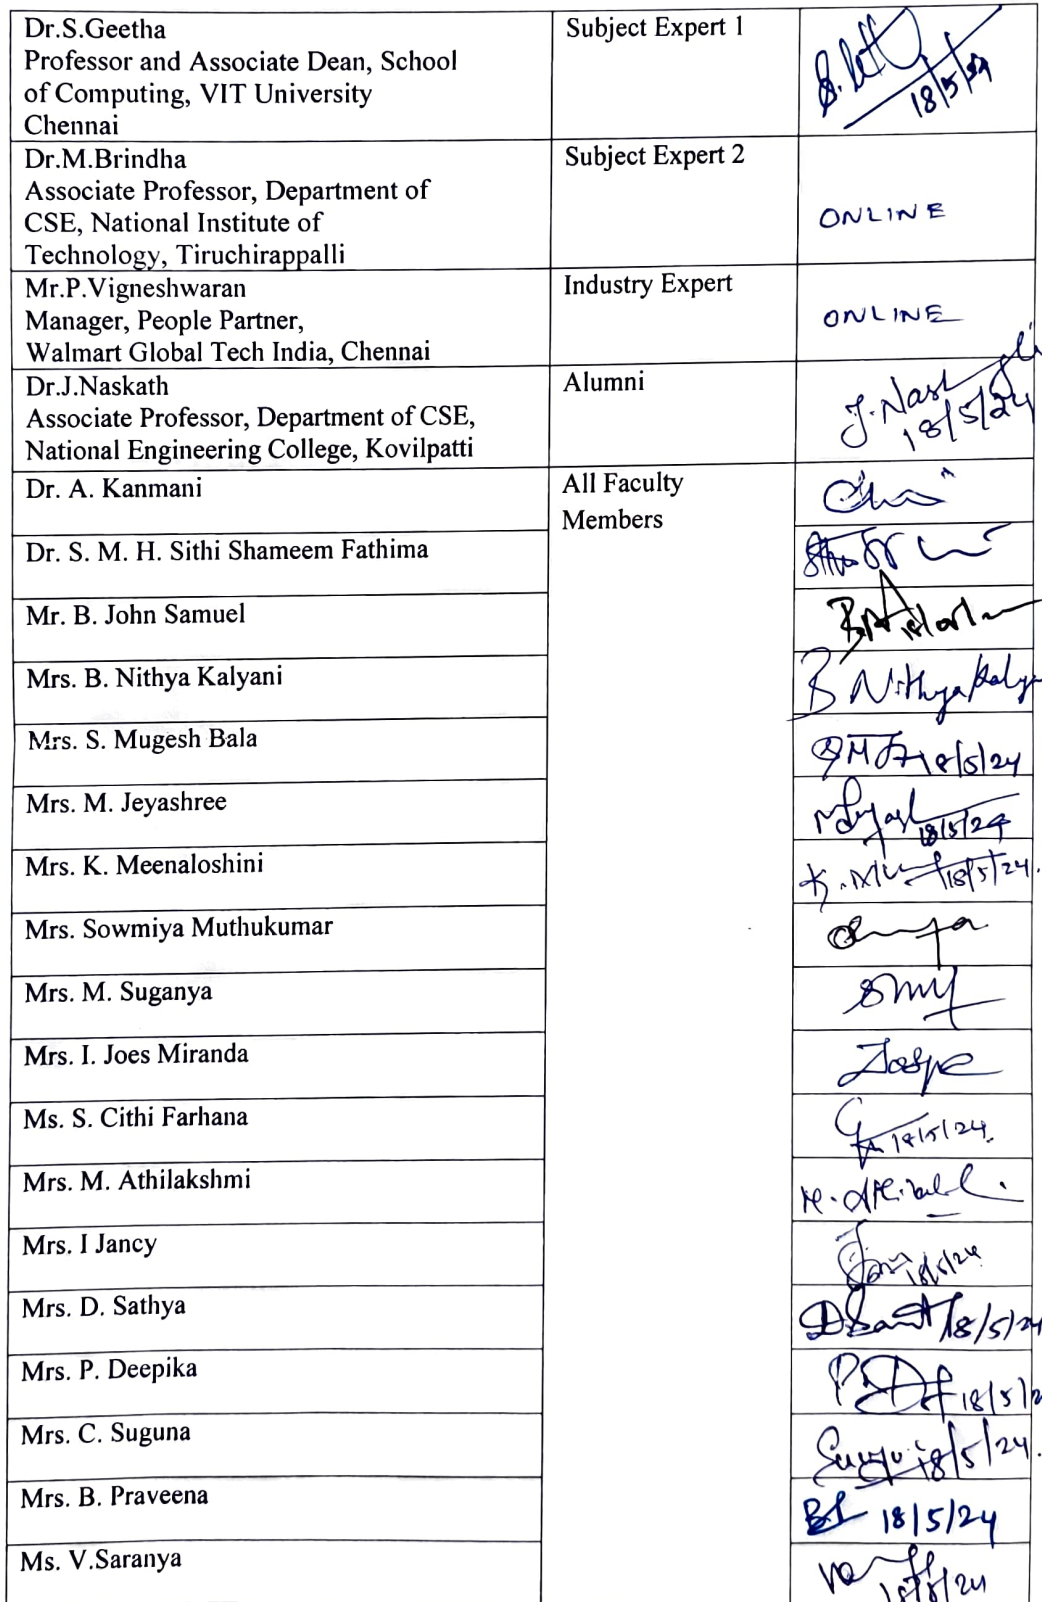 Dr.S.Geetha
Professor and Associate Dean, School
of Computing, VIT University
Chennai
Subject Expert 1
18/5/24
Dr.M.Brindha
Associate Professor, Department of
CSE, National Institute of
Technology, Tiruchirappalli
Subject Expert 2
ONLINE
Mr.P.Vigneshwaran
Manager, People Partner,
Walmart Global Tech India, Chennai
Industry Expert
ONLINE
Dr.J.Naskath
Associate Professor, Department of CSE,
National Engineering College, Kovilpatti
Alumni
18/5/24
Dr. A. Kanmani
All Faculty
Members
Dr. S. M. H. Sithi Shameem Fathima
Mr. B. John Samuel
Mrs. B. Nithya Kalyani
B Nithya Kalya
Mrs. S. Mugesh Bala
18/5/24
Mrs. M. Jeyashree
18/5/24
Mrs. K. Meenaloshini
18/5/24.
Mrs. Sowmiya Muthukumar
Mrs. M. Suganya
Mrs. I. Joes Miranda
Ms. S. Cithi Farhana
18/5/24.
Mrs. M. Athilakshmi
Mrs. I Jancy
18/5/24
Mrs. D. Sathya
18/5/24
Mrs. P. Deepika
18/5/2
Mrs. C. Suguna
18/5/24.
Mrs. B. Praveena
18/5/24
Ms. V.Saranya
18/5/24